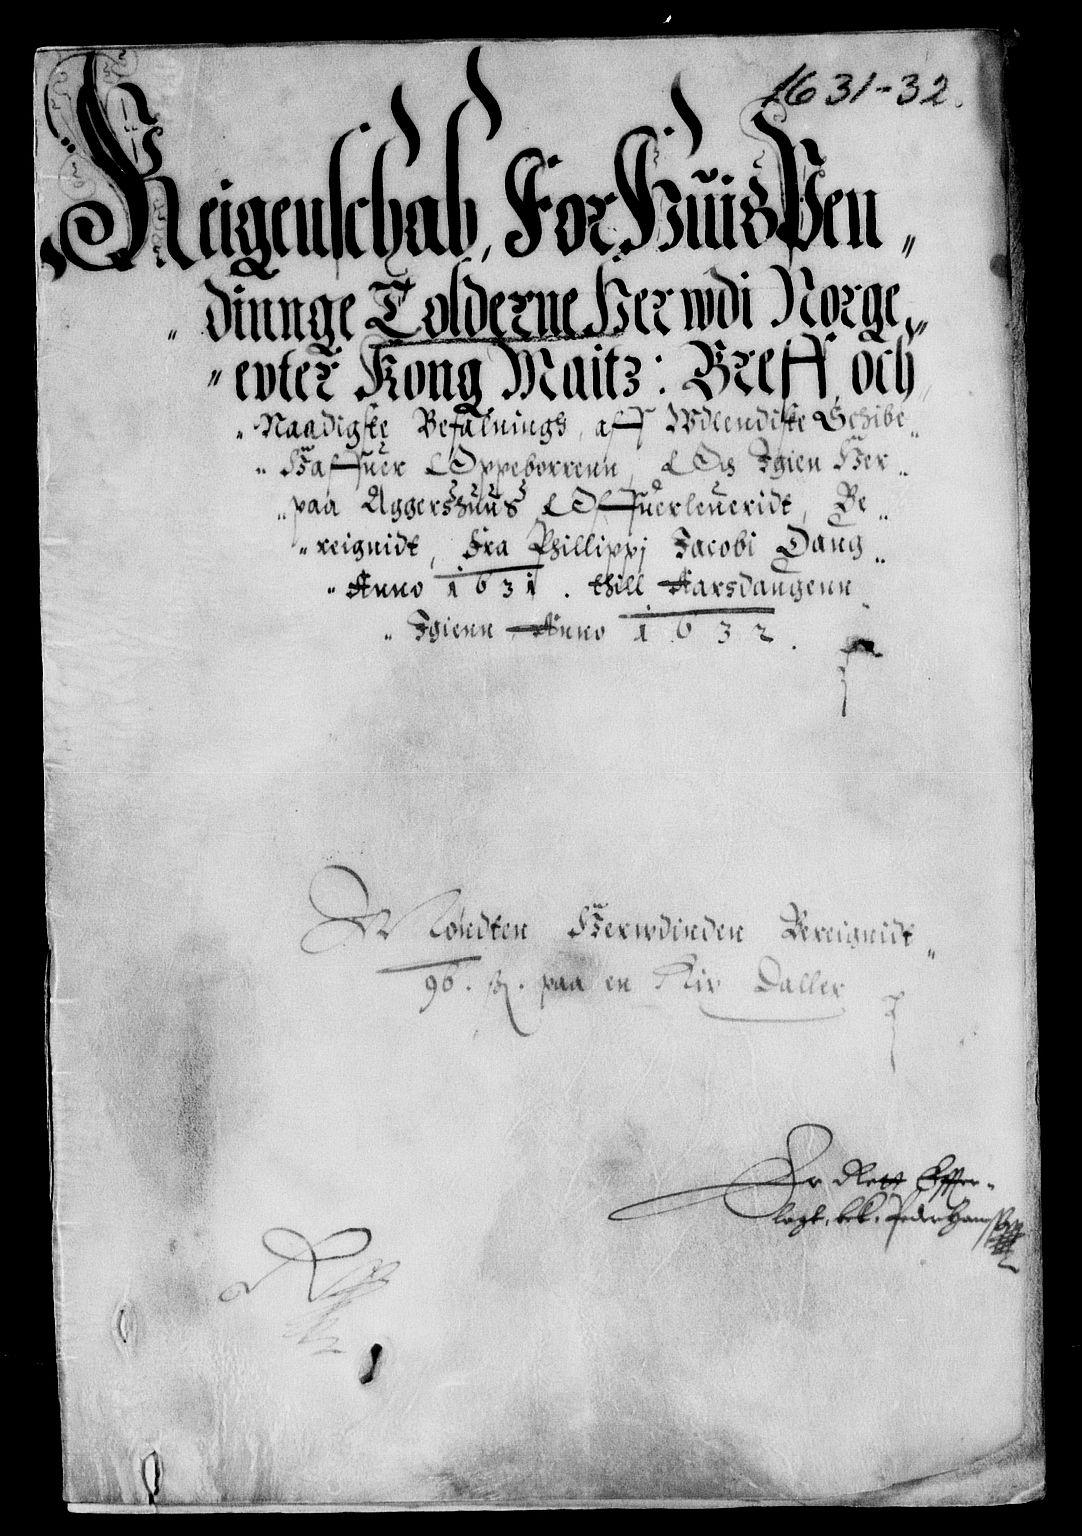 1631-32.
Reigenschab, For Huis Pen„
„dinnge Tolderne Her wdi Norge„
„ epter Kong Maitz: Breff, och
„Naadigste Befalnings, aff Wdlendiske Schibe„
„Haffuer Oppeborrenn, Och Igien Her„
„paa Aggershuus Offuerleueridt, Be„
„reignidt, Fra Phillippj Jacobi Daug„
„Anno 1631. thill Aarsdaugenn„
„Igienn Anno 1632.
Møndten Herwdinden Bereignidt„
96. ß. paa en Rix Daller
Er Rett Effter„
lagt, bek. Peder Hanß
1